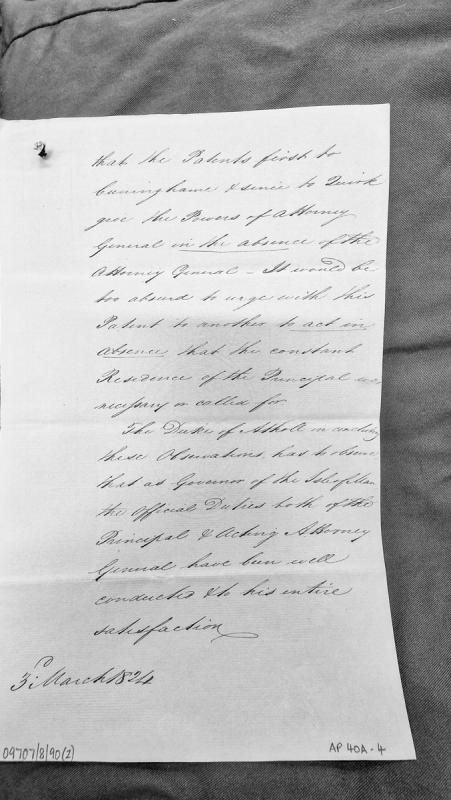 that the Patents first to
Cuninghame & since to Quirk
give the Powers of Attorney
General in the absence of the
Attorney General – It would be
too absurd to urge with this
Patent to another to act in
absence that the constant
Residence of the Principal was
necessary or called for
The Duke of Atholl in concluding
these Observations, has to observe
that as Governor of the Isle of Man
the Official Duties both of the
Principal & Acting Attorney
General have been well
conducted & to his entire
satisfaction
3d. March 1824
09707/8/90(2)
AP 40A-4